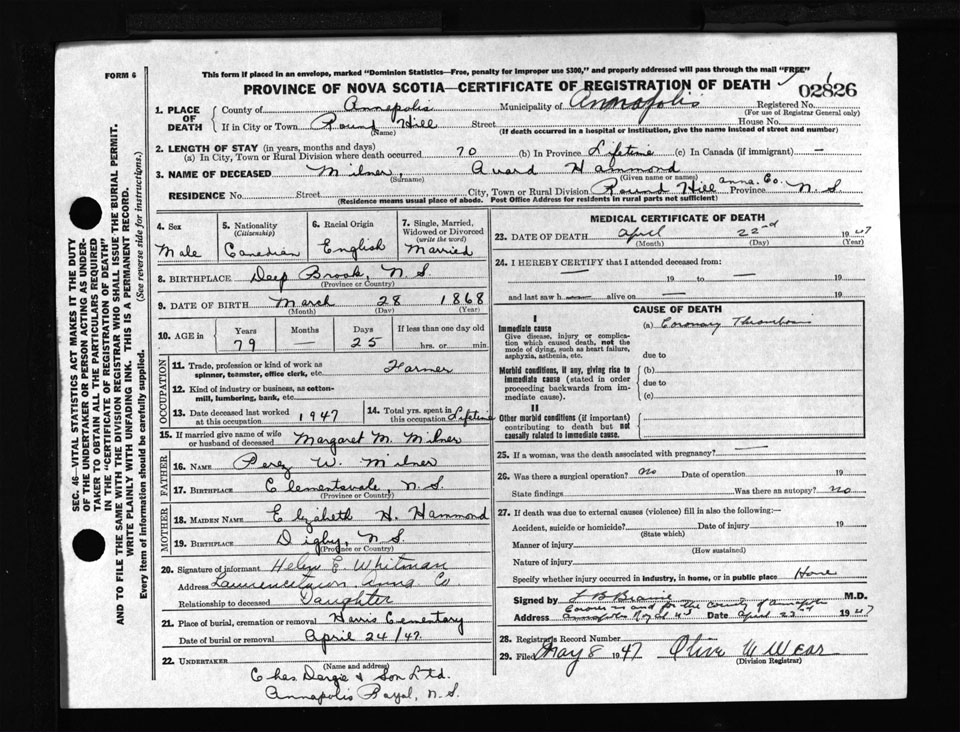 FORM 6
This form if placed in an envelope, marked "Dominion Statistics—Free, penalty for improper use $300," and properly addressed will pass through the mail "FREE"
PROVINCE OF NOVA SCOTIA—CERTIFICATE OF REGISTRATION OF DEATH
02826
SEC. 46—VITAL STATISTICS ACT MAKES IT THE DUTY
OF THE UNDERTAKER OR PERSON ACTING AS UNDER-
TAKER TO OBTAIN ALL THE PARTICULARS REQUIRED
IN THE "CERTIFICATE OF REGISTRATION OF DEATH"
AND TO FILE THE SAME WITH THE DIVISION REGISTRAR WHO SHALL ISSUE THE BURIAL PERMIT.
WRITE PLAINLY WITH UNFADING INK. THIS IS A PERMANENT RECORD.
Every item of information should be carefully supplied. (See reverse side for instructions.)
1. PLACE OF DEATH
County of Annapolis Municipality of Annapolis Registered No.
(For use of Registrar General only)
If in City or Town Round Hill Street House No.
(Name) (If death occurred in a hospital or institution, give the name instead of street and number)
2. LENGTH OF STAY (in years, months and days)
(a) In City, Town or Rural Division where death occurred 70 (b) In Province Lifetime (c) In Canada (if immigrant) —
3. NAME OF DECEASED Milner, Avard Hammond
(Surname) (Given name or names)
RESIDENCE No. Street City, Town or Rural Division Round Hill Anna. Co. Province N.S.
(Residence means usual place of abode. Post Office Address for residents in rural parts not sufficient)
4. Sex
Male
5. Nationality
(Citizenship)
Canadian
6. Racial Origin
English
7. Single, Married,
Widowed or Divorced
(write the word)
Married
8. BIRTHPLACE Deep Brook, N.S
(Province or Country)
9. DATE OF BIRTH March 28 1868
(Month) (Day) (Year)
10. AGE in Years Months Days If less than one day old
79 25 hrs. or min.
OCCUPATION
11. Trade, profession or kind of work as
spinner, teamster, office clerk, etc. Farmer
12. Kind of industry or business, as cotton-
mill, lumbering, bank, etc.
13. Date deceased last worked
at this occupation 1947
14. Total yrs. spent in
this occupation Lifetime
15. If married give name of wife
or husband of deceased Margaret M. Milner
FATHER
16. NAME Perez W. Milner
17. BIRTHPLACE Clementsvale, N.S.
(Province or Country)
MOTHER
18. MAIDEN NAME Elizabeth H. Hammond
19. BIRTHPLACE Digby, N.S
(Province or Country)
20. Signature of informant Helen E. Whitman
Address Lawrencetown Anna Co
Relationship to deceased Daughter
21. Place of burial, cremation or removal Harris Cementary
Date of burial or removal April 24/47.
22. UNDERTAKER
(Name and address)
Chas Dargie & Son Ltd.
Annapolis Royal, N.S.
MEDICAL CERTIFICATE OF DEATH
23. DATE OF DEATH April 22nd 1947
(Month) (Day) (Year)
24. I HEREBY CERTIFY that I attended deceased from:
— 19 to — 19
and last saw h— alive on — 19
CAUSE OF DEATH
I
Immediate cause
Give disease, injury or complica-
tion which caused death, not the
mode of dying, such as heart failure,
asphyxia, asthenia, etc.
(a) Coronary Thrombosis
due to
Morbid conditions, if any, giving rise to
immediate cause (stated in order
proceeding backwards from im-
mediate cause).
(b)
due to
(c)
II
Other morbid conditions (if important)
contributing to death but not
causally related to immediate cause.
25. If a woman, was the death associated with pregnancy? —
26. Was there a surgical operation? no Date of operation 19
State findings Was there an autopsy? no
27. If death was due to external causes (violence) fill in also the following:—
Accident, suicide or homicide? Date of injury 19
(State which)
Manner of injury
(How sustained)
Nature of injury
Specify whether injury occurred in industry, in home, or in public place Home
Signed by M.D.
Coroner in and for the County of Annapolis
Address Annapolis Royal Date April 23rd 1947
28. Registrar's Record Number
29. Filed May 8 1947 Olive M Wear
(Division Registrar)